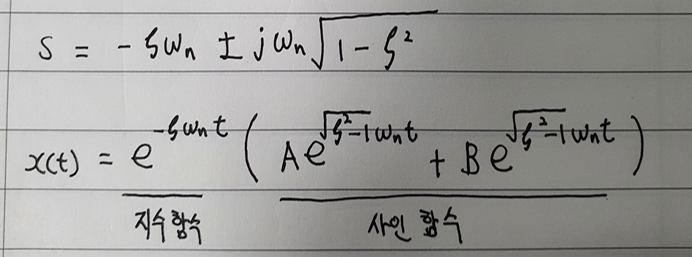 s = -ζωₙ ± jωₙ√(1 - ζ²)
x(t) = e^(-ζωₙt) ( A e^(√(ζ²-1) ωₙt) + B e^(√(ζ²-1) ωₙt) )
지수함수 사인 함수